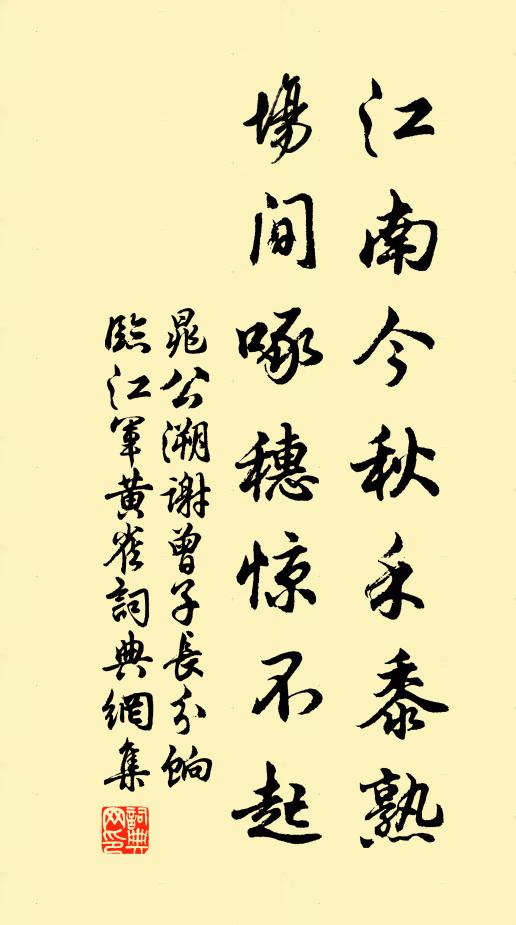 江南今秋禾黍熟
場间啄穗惊不起
晁公溯谢曾子長分餉
臨江軍黄雀詞典網集
詞典
网印